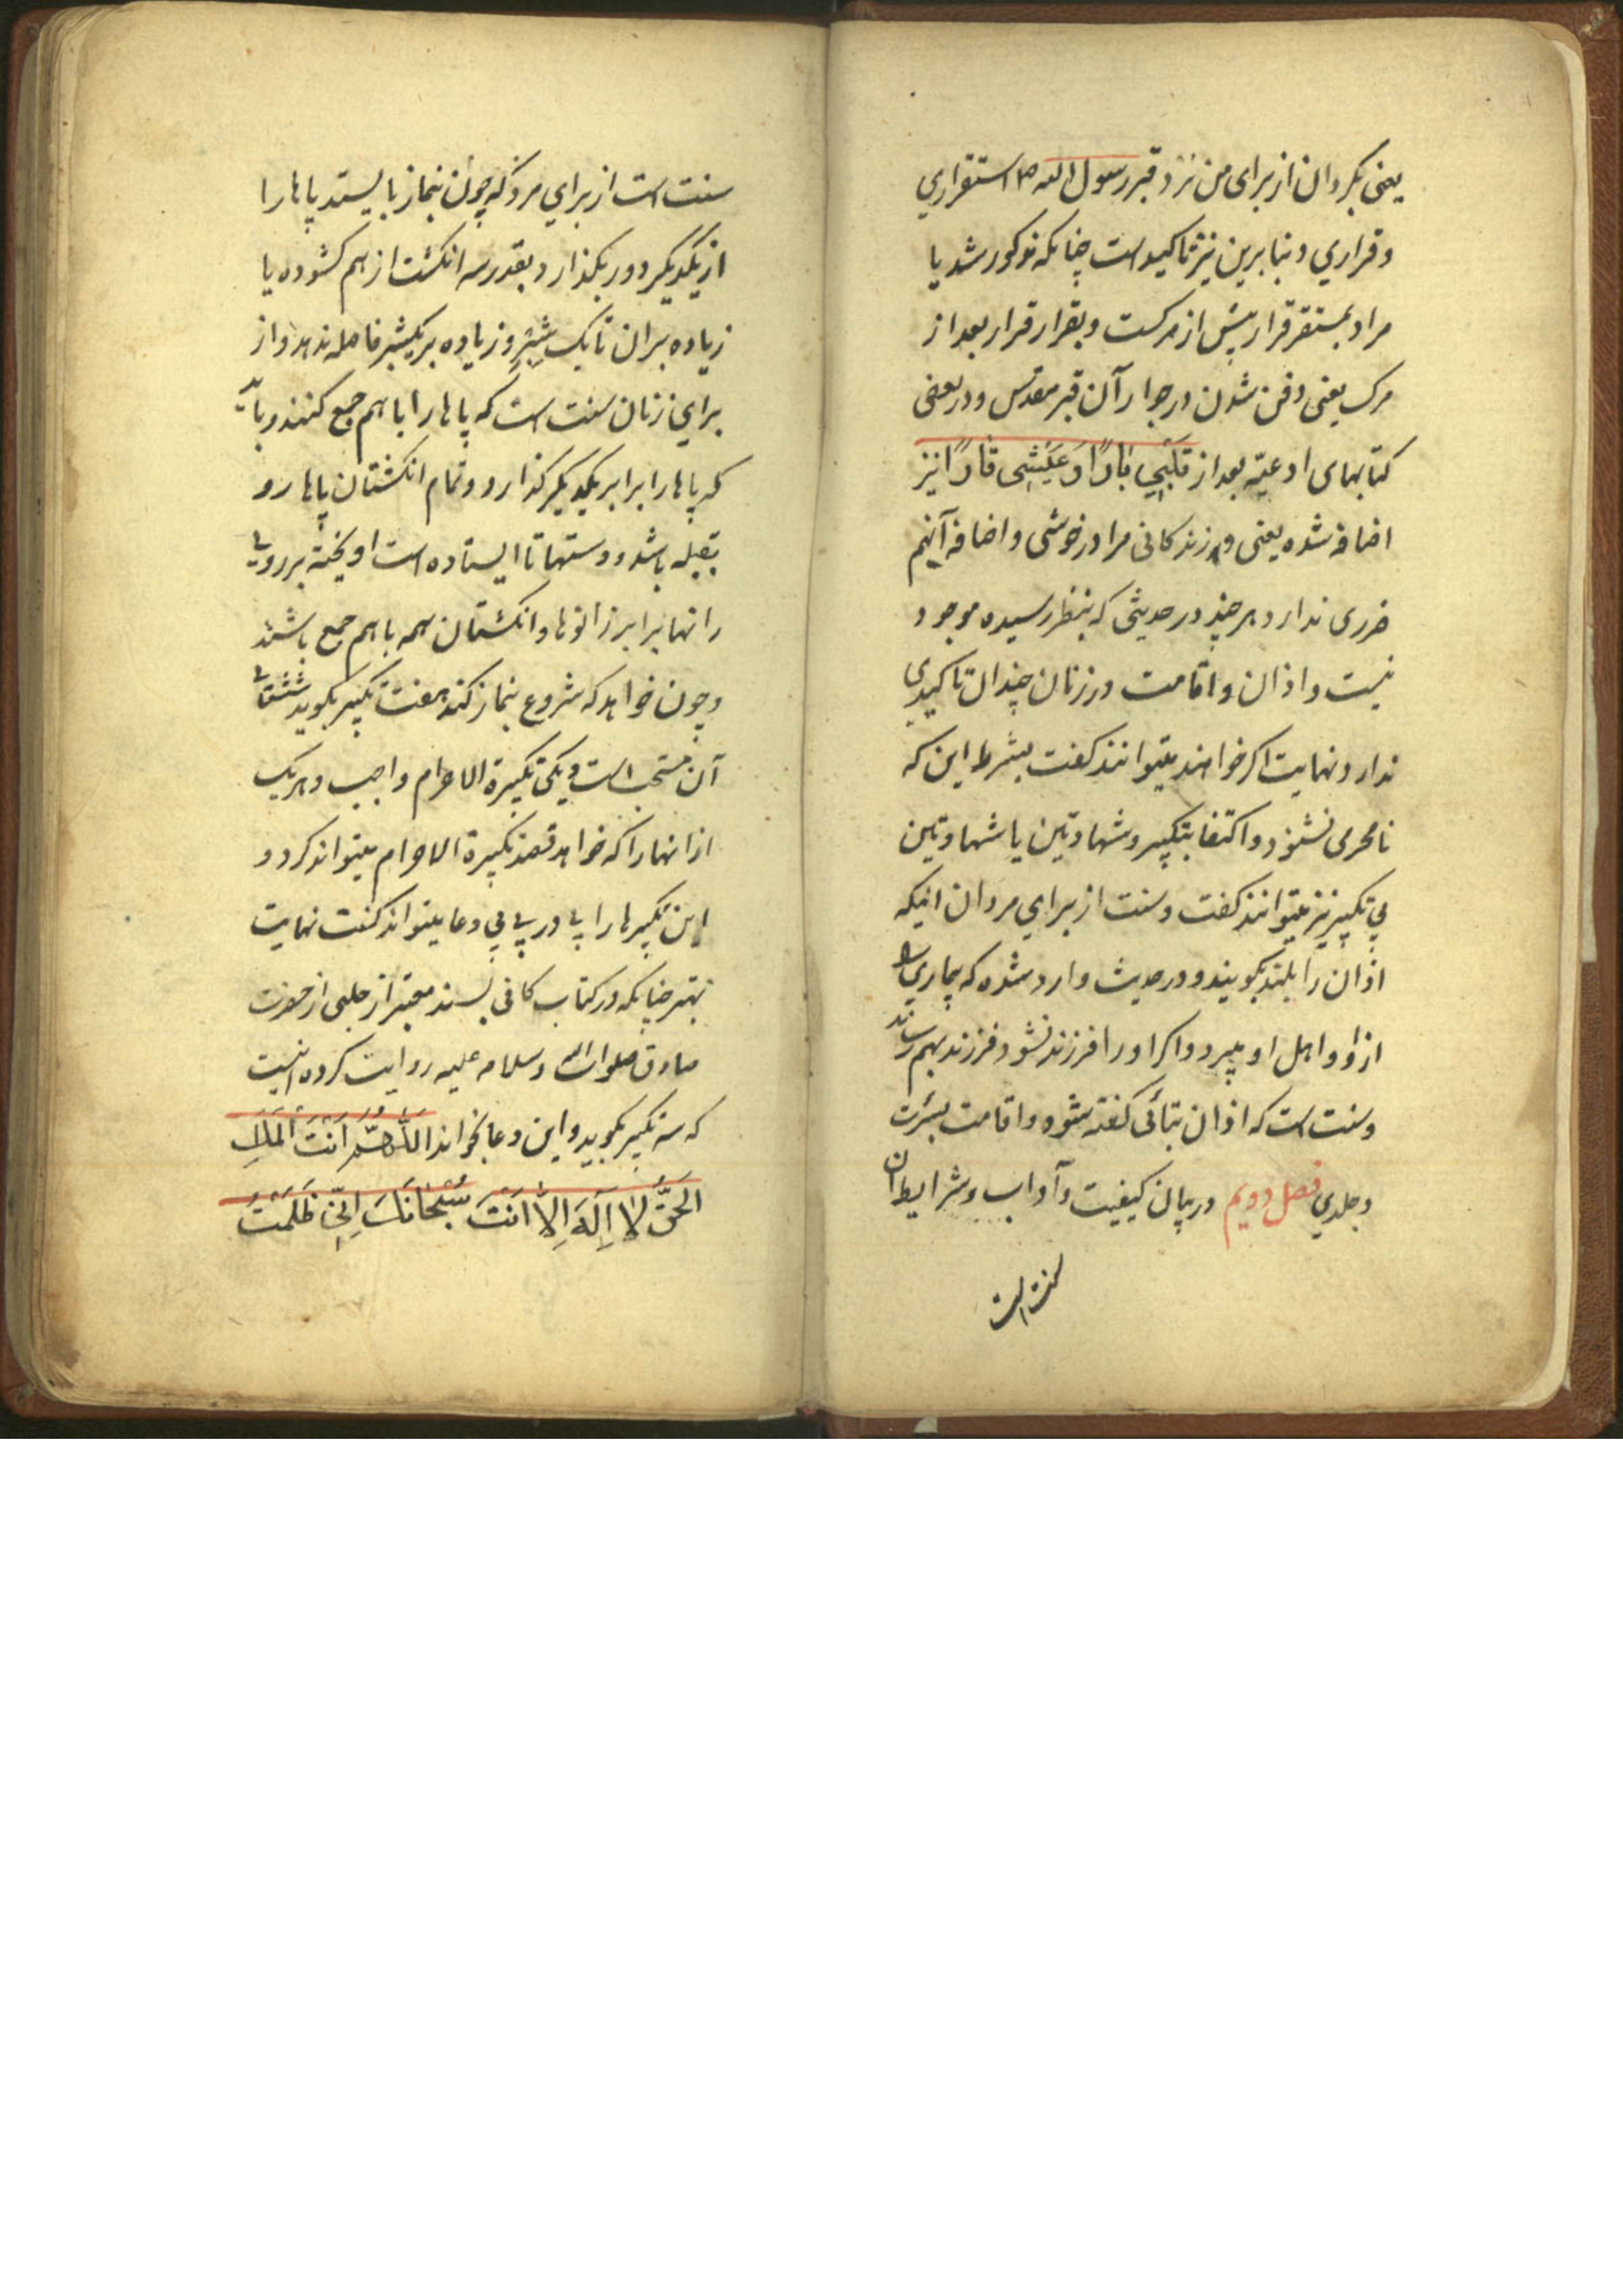 یعنی بکردان از برای من نزد قبر رسول الله ص استقراري
و قراري و بنابرین نیز تاکید است چنانکه مذکور شد یا
مراد بمستقر قرار پیش از مرکست و بقرار قرار بعد از
مرک یعنی دفن شدن در جوار آن قبر مقدس و در بعضی
کتابهای ادعیّه بعد از قَلْبِي بَارًا وَ عَیْشِی قَارًا نیز
اضافه شده یعنی و زندکانی مرا در خوشی و اضافه آنهم
ضرری ندارد هر چند در حدیثی که بنظر رسیده موجود
نیست و اذان و اقامت در زنان چندان تاکیدي
ندارد نهایت اکر خواهند میتوانند کفت بشرط این که
نامحرمی نشنود و اکتفا بتکبیر و شهادتین یا شهادتین
بي تکبیر نیز میتوانند کفت و سنت از براي مردان اینکه
اذان را بلند بکویند و در حدیث وارد شده که بیماري
از او و اهل او ببرد و اکر او را فرزند نشود فرزند بهم رساند
و سنت است که اذان بتأنی کفته شود و اقامت بسرعت
و جلدي فصل دویم در بیان کیفیت و آداب و شرایط آن
سنت است
سنت است از براي مرد که چون بنماز بایستد پاها را
از یکدیکر دور بکذارد بقدر سه انکشت از هم کشوده یا
زیاده بر ان تا یک شِبْر و زیاده بر یکشبر فاصله ندهد و از
براي زنان سنت است که پاها را با هم جمع کنند و باید
که پاها را برابر یکدیکر کذارد و تمام انکشتان پاها رو
بقبله باشد و دستها تا ایستاده است اویخته بر روی
رانها برابر زانوها و انکشتان همه با هم جمع باشند
و چون خواهد که شروع بنماز کند هفت تکبیر بکوید شش تای
آن مستحب است و یکی تکبیرة الاحرام واجب و هر یک
از انها را که خواهد قصد تکبیرة الاحرام میتواند کرد و
این تکبیرها را پی در پی بي دعا میتواند کفت نهایت
بهتر چنانکه در کتاب کافی بسند معتبر از حلبی از حضرت
صادق صلوات الله و سلامه علیه روایت کرده اینست
که سه تکبیر بکوید و این دعا بخواند اللّٰهُمَّ اَنْتَ الْمَلِكُ
الْحَقُّ لَا اِلَهَ اِلَّا اَنْتَ سُبْحَانَكَ اِنِّي ظَلَمْتُ